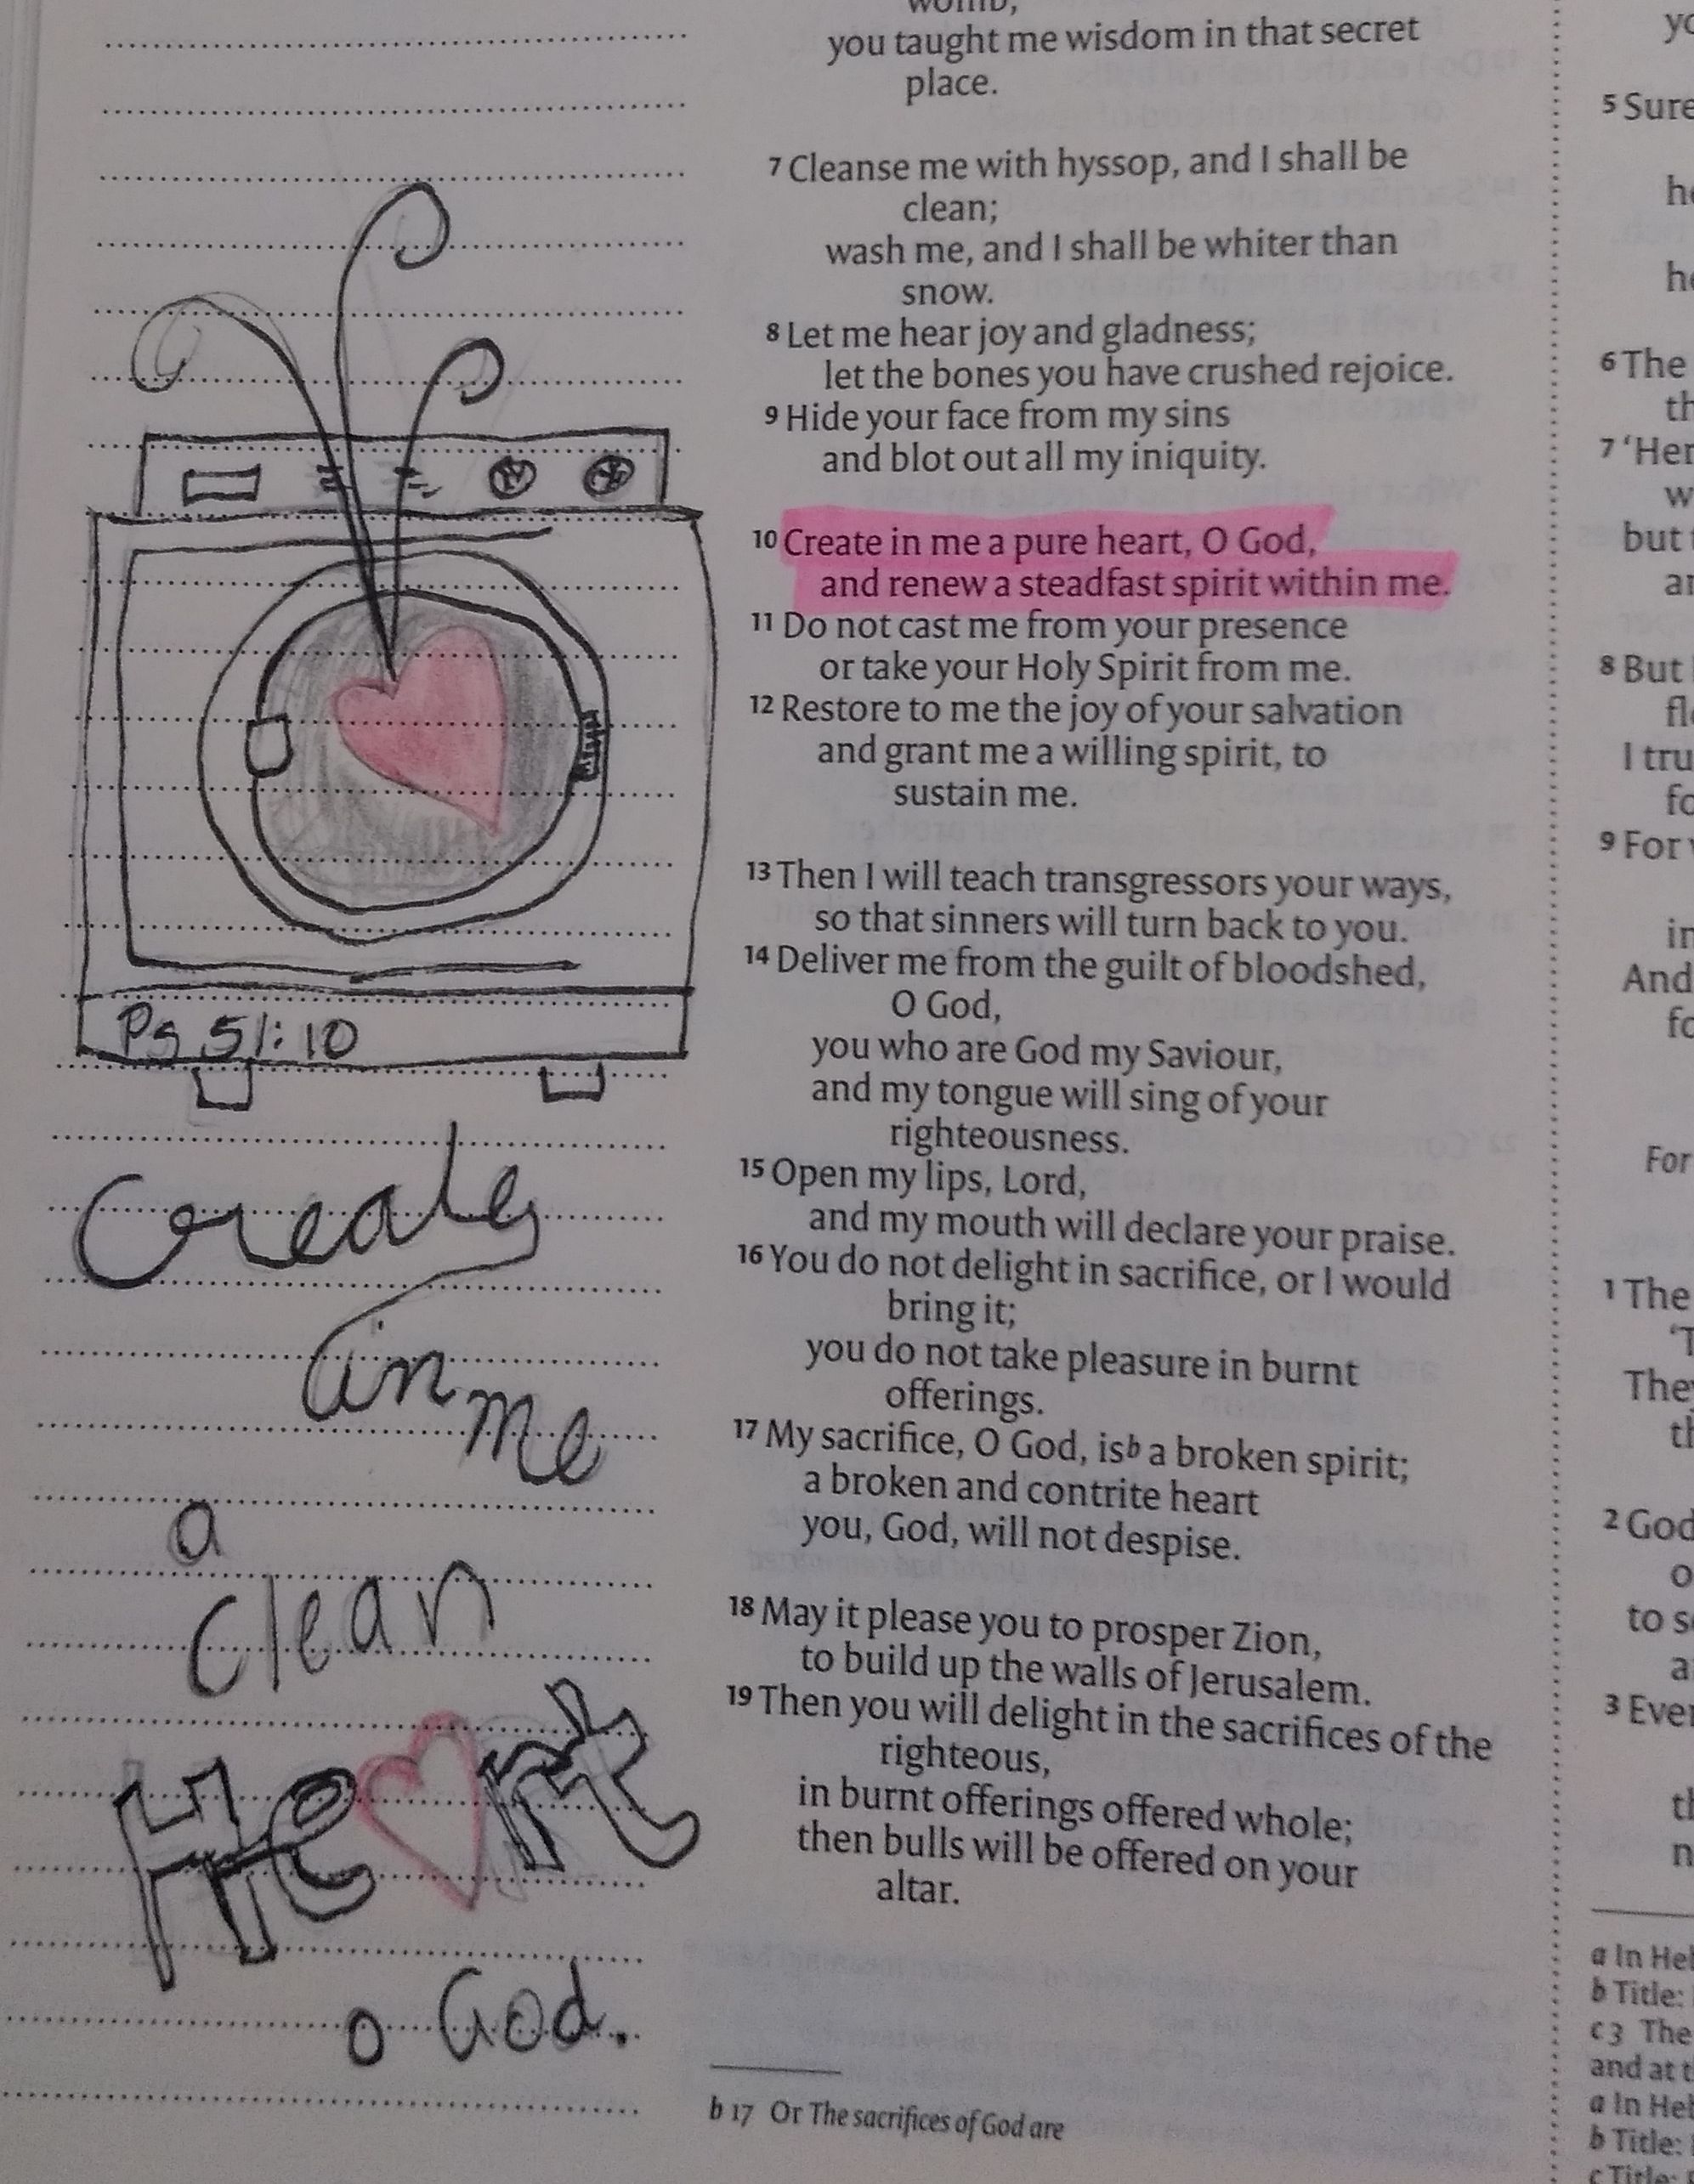 Ps 51:10
Create
in
me
a
clean
Heart
o God.
you taught me wisdom in that secret
place.
7 Cleanse me with hyssop, and I shall be
clean;
wash me, and I shall be whiter than
snow.
8 Let me hear joy and gladness;
let the bones you have crushed rejoice.
9 Hide your face from my sins
and blot out all my iniquity.
10 Create in me a pure heart, O God,
and renew a steadfast spirit within me.
11 Do not cast me from your presence
or take your Holy Spirit from me.
12 Restore to me the joy of your salvation
and grant me a willing spirit, to
sustain me.
13 Then I will teach transgressors your ways,
so that sinners will turn back to you.
14 Deliver me from the guilt of bloodshed,
O God,
you who are God my Saviour,
and my tongue will sing of your
righteousness.
15 Open my lips, Lord,
and my mouth will declare your praise.
16 You do not delight in sacrifice, or I would
bring it;
you do not take pleasure in burnt
offerings.
17 My sacrifice, O God, is b a broken spirit;
a broken and contrite heart
you, God, will not despise.
18 May it please you to prosper Zion,
to build up the walls of Jerusalem.
19 Then you will delight in the sacrifices of the
righteous,
in burnt offerings offered whole;
then bulls will be offered on your
altar.
b 17 Or The sacrifices of God are
5 Sure
6 The
7 ‘Her
but
8 But
I tru
9 For
And
For
1 The
They
2 God
to s
3 Ever
a In Heb
b Title:
c 3 The
and at t
a In Heb
b Title:
c Title: